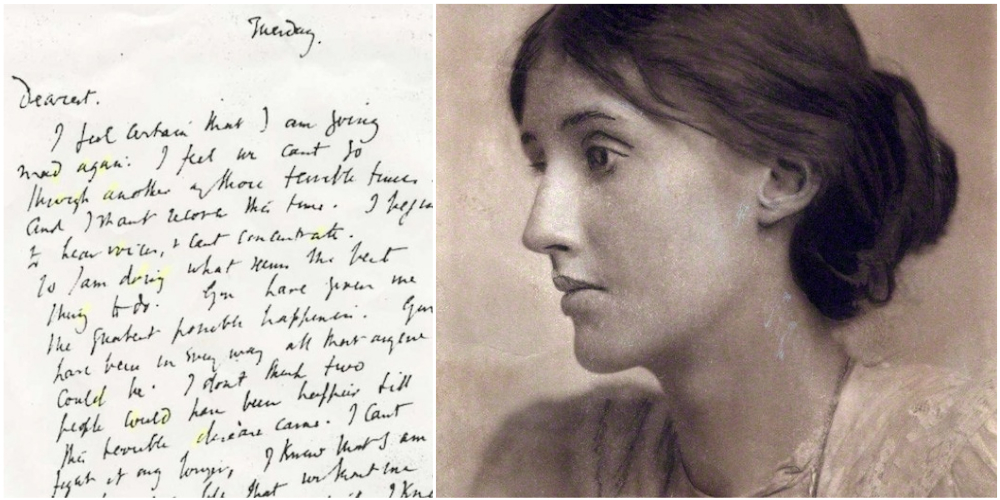 Tuesday.
Dearest.
I feel certain that I am going
mad again. I feel we cant go
through another of those terrible times.
And I shant recover this time. I begin
to hear voices, & cant concentrate.
So I am doing what seems the best
thing to do. You have given me
the greatest possible happiness. You
have been in every way all that anyone
could be. I dont think two
people could have been happier till
this terrible disease came. I cant
fight it any longer, I know that I am
life that without me
I know